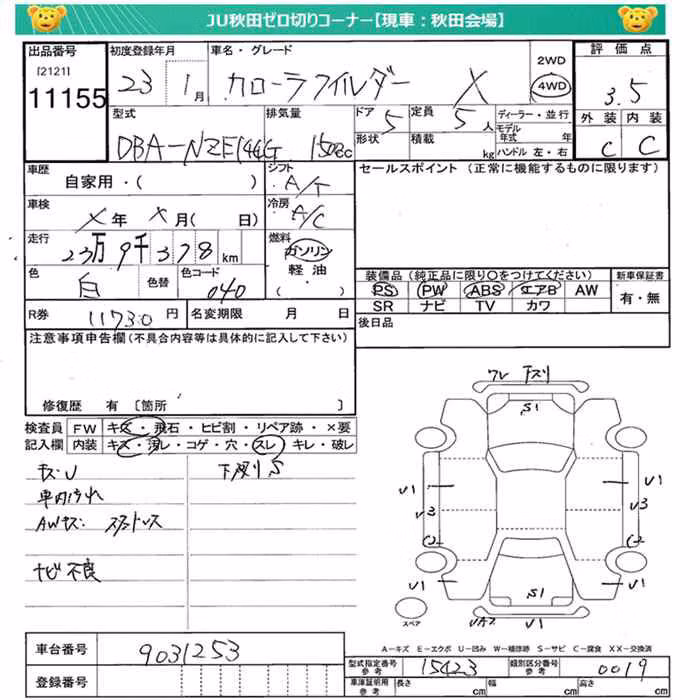 JU秋田ゼロ切りコーナー【現車：秋田会場】
出品番号 初度登録年月 車名・グレード 2WD 評価点
[2121] 23 1月 カローラフィルダー X 4WD 3.5
11155
型式 排気量 ドア 5 定員 5人 ディーラー・並行 外装 内装
DBA-NZE144G 1500cc 形状 積載 kg モデル年式 年 C C
ハンドル 左・右
車歴 シフト セールスポイント（正常に機能するものに限ります）
自家用・（ ） A/T
車検 冷房
X年 X月（ 日） A/C
走行 燃料
23万9千378km ガソリン
色 色替 色コード 軽油 装備品（純正品に限り○をつけてください） 新車保証書
白 040 （ ） PS PW ABS エアB AW 有・無
SR ナビ TV カワ
R券 11730円 名変期限 月 日 後日品
注意事項申告欄（不具合内容等は具体的に記入して下さい）
修復歴 有 〔箇所 〕
検査員 FW キズ・飛石・ヒビ割・リペア跡・×要
記入欄 内装 キズ・汚レ・コゲ・穴・スレ・キレ・破レ
キズU 下廻りS
車内汚れ
AWキズ スタッドレス
ナビ不良
ワレ 下スリ
S1
V1 V1
V3 V3
C2 C2
V1 V1
S1
スペア UA2 V1
A－キズ E－エクボ U－凹み W－補修跡 S－サビ C－腐食 XX－交換済
車台番号 9031253
型式指定番号 参考 15423 類別区分番号 参考 0019
登録番号
車庫証明用 参考 長さ cm 幅 cm 高さ cm